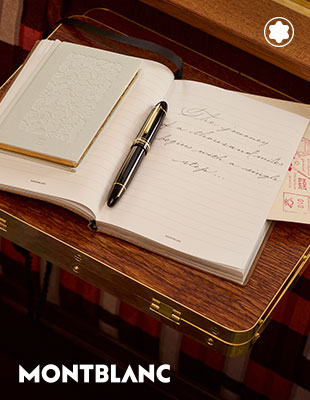 The journey
of a thousand miles
begins with a single
step.
MONTBLANC